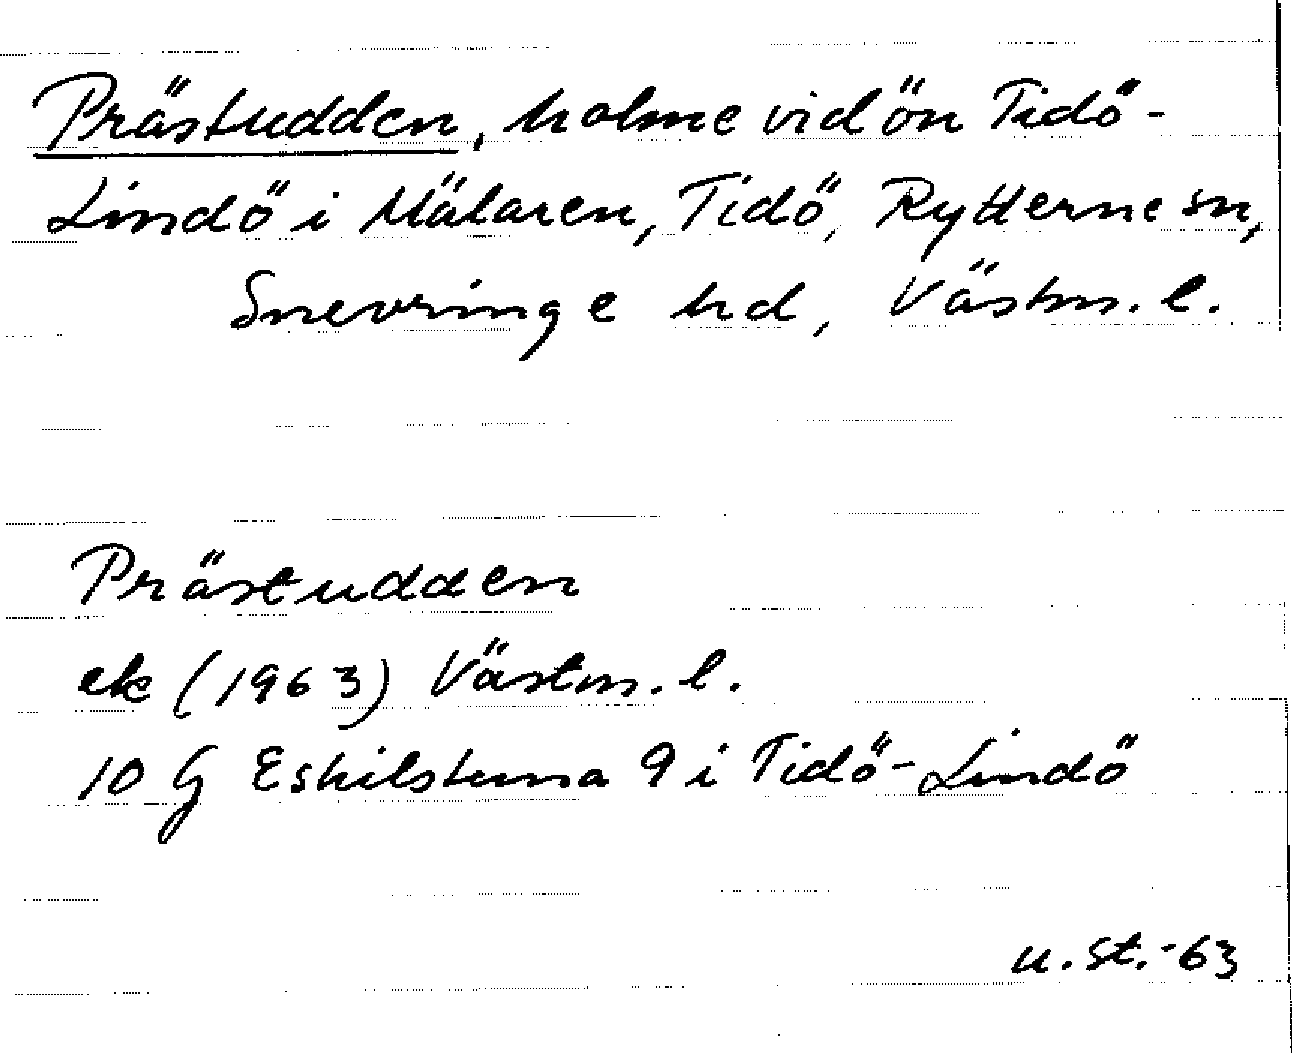 Prästudden, holme vid ön Tidö-
Lindö i Mälaren, Tidö, Rytterne sn,
Snevringe hd, Västm. l.
Prästudden
ek (1963) Västm. l.
10 G Eskilstuna 9 i Tidö-Lindö
u. st. -63